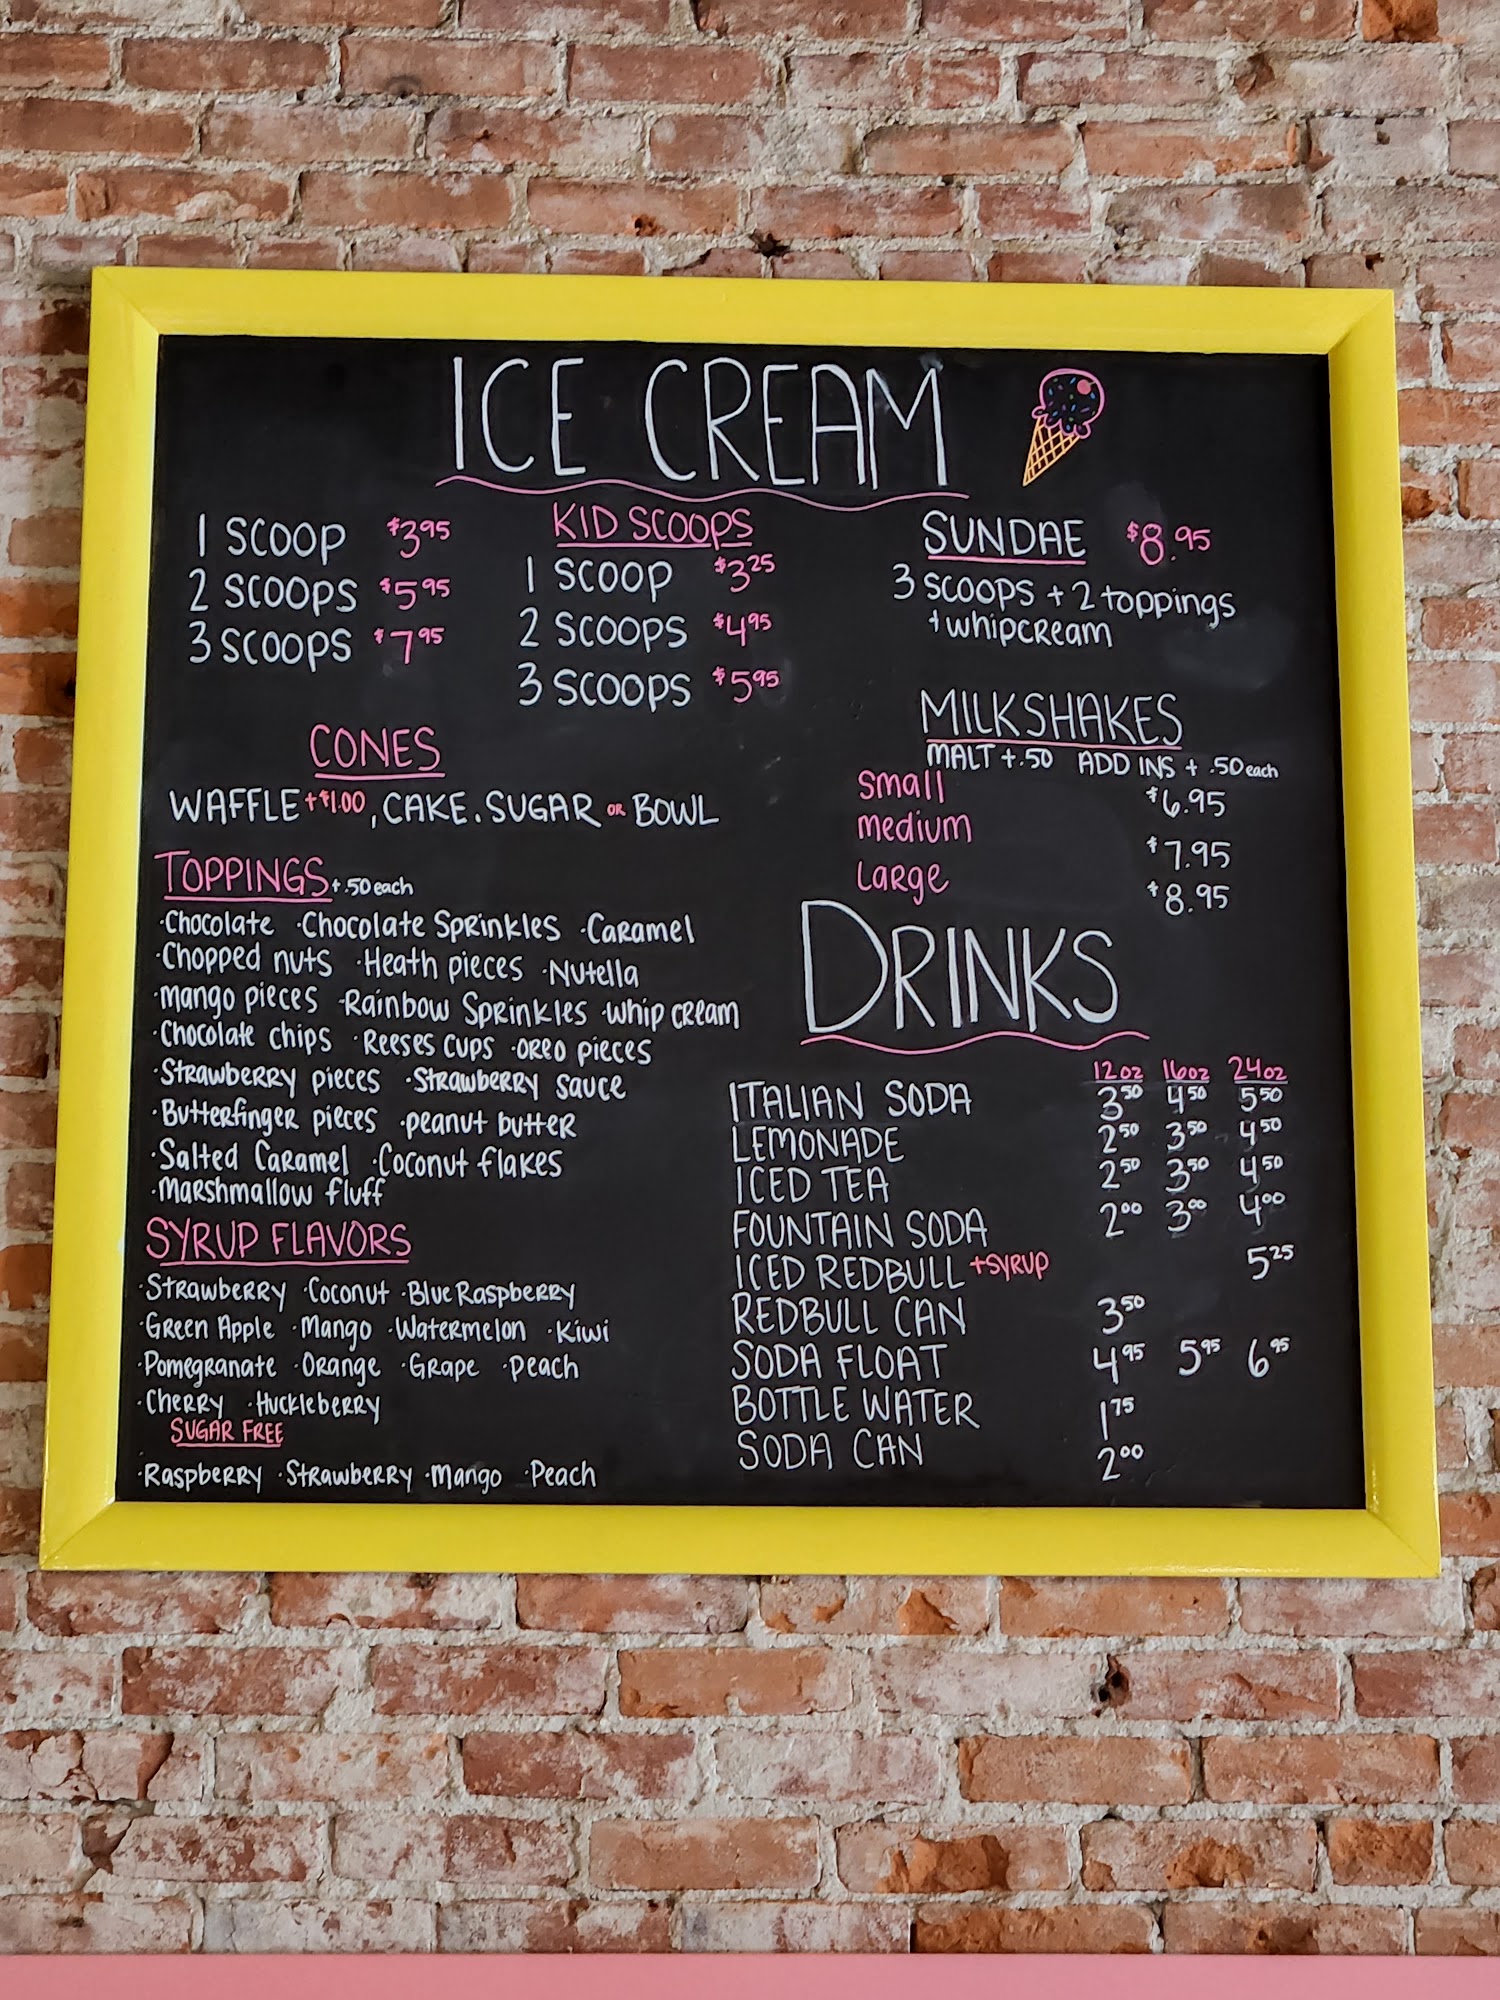 ICE CREAM
1 SCOOP $3.95
2 SCOOPS $5.95
3 SCOOPS $7.95
KID SCOOPS
1 SCOOP $3.25
2 SCOOPS $4.95
3 SCOOPS $5.95
SUNDAE $8.95
3 SCOOPS + 2 toppings
+ whipcream
CONES
WAFFLE +$1.00, CAKE, SUGAR OR BOWL
MILKSHAKES
MALT +.50 ADD INS + .50 each
Small $6.95
medium $7.95
Large $8.95
TOPPINGS +.50 each
·Chocolate ·Chocolate Sprinkles ·Caramel
·Chopped nuts ·Heath pieces ·Nutella
·mango pieces ·Rainbow Sprinkles ·whip cream
·Chocolate chips ·Reeses cups ·oreo pieces
·Strawberry pieces ·Strawberry sauce
·Butterfinger pieces ·peanut butter
·Salted Caramel ·Coconut flakes
·Marshmallow fluff
SYRUP FLAVORS
·Strawberry ·Coconut ·Blue Raspberry
·Green Apple ·Mango ·Watermelon ·Kiwi
·Pomegranate ·Orange ·Grape ·Peach
·Cherry ·Huckleberry
SUGAR FREE
·Raspberry ·Strawberry ·Mango ·Peach
DRINKS
12oz 16oz 24oz
ITALIAN SODA 3.50 4.50 5.50
LEMONADE 2.50 3.50 4.50
ICED TEA 2.50 3.50 4.50
FOUNTAIN SODA 2.00 3.00 4.00
ICED REDBULL +SYRUP 5.25
REDBULL CAN 3.50
SODA FLOAT 4.95 5.95 6.95
BOTTLE WATER 1.75
SODA CAN 2.00